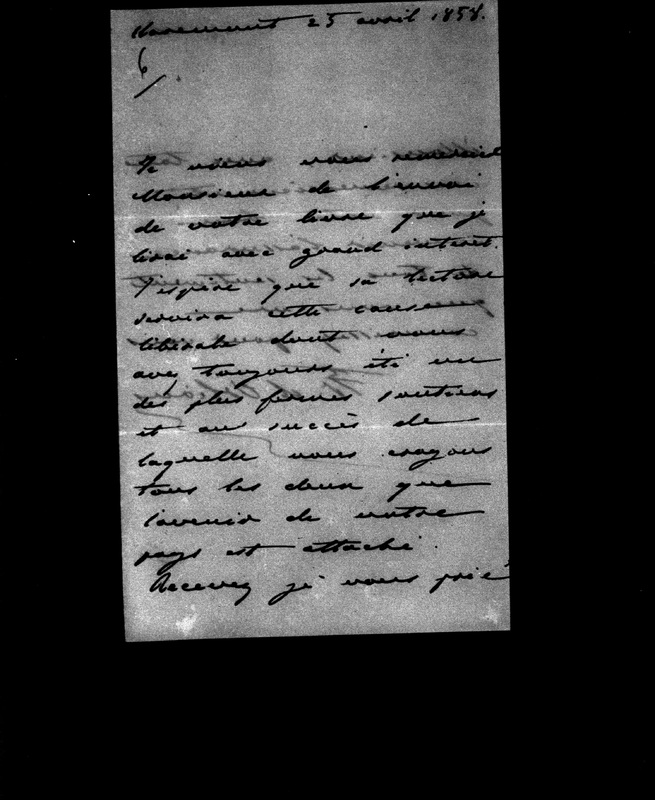 Claremont 25 avril 1858.
6/.
Je viens vous remercier
Monsieur de l'envoi
de votre livre que je
lirai avec grand intérêt.
J'espère que sa lecture
servira cette cause
libérale dont vous
avez toujours été un
des plus fermes soutiens
et au succès de
laquelle nous croyons
tous les deux que
l'avenir de notre
pays est attaché.
Recevez je vous prie